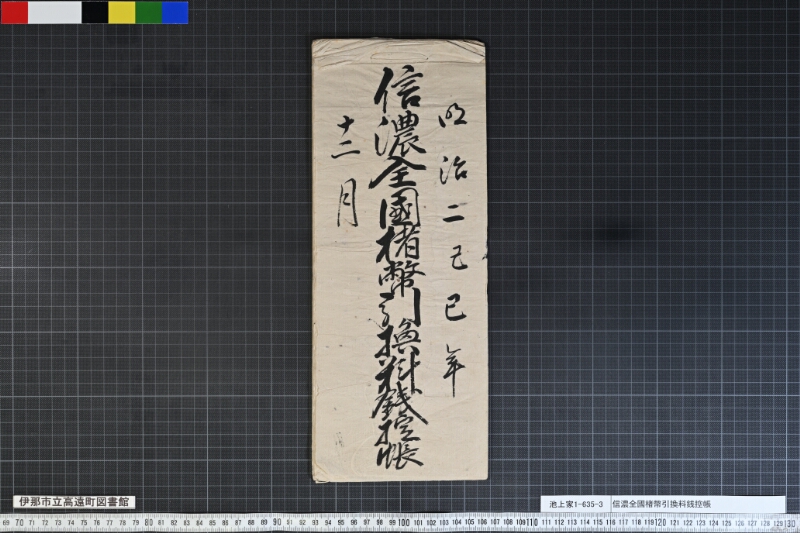 明治二己巳年
信濃全國楮幣引換料銭控帳
十二月
伊那市立高遠町図書館
池上家1-635-3
信濃全國楮幣引換料銭控帳
69 70 71 72 73 74 75 76 77 78 79 80 81 82 83 84 85 86 87 88 89 90 91 92 93 94 95 96 97 98 99 100 101 102 103 104 105 106 107 108 109 110 111 112 113 114 115 116 117 118 119 120 121 122 123 124 125 126 127 128 129 130